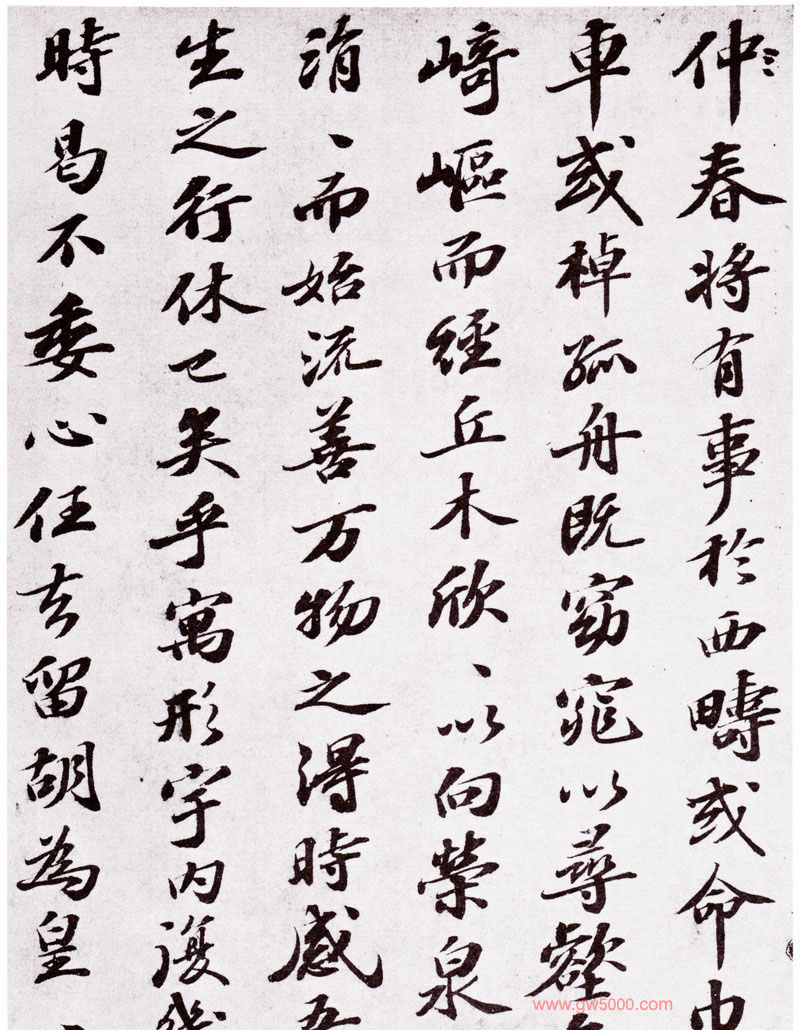 仲春將有事於西疇或命巾
車或棹孤舟既窈窕以尋壑
崎嶇而經丘木欣、以向榮泉
涓、而始流善万物之得時感吾
生之行休已矣乎寓形宇內復幾
時曷不委心任去留胡為皇
www.gw5000.com